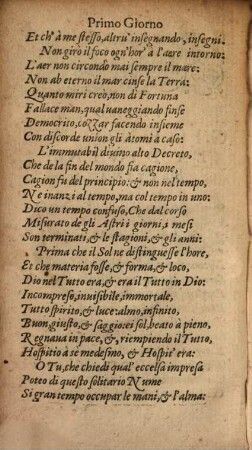 Primo Giorno
Et ch'à me stesso, altrui insegnando, insegni.
Non girò il foco ogn'hor' à l'aere intorno:
L'aer non circondò mai sempre il mare:
Non ab eterno il mar cinse la Terra:
Quanto miri creò, non di Fortuna
Fallace man, qual uaneggiando finse
Democrito, cozzar facendo insieme
Con discorde union gli atomi à caso:
L'immutabil diuino alto Decreto,
Che de la fin del mondo fia cagione,
Cagion fu del principio: & non nel tempo,
Ne inanzi al tempo, ma col tempo in uno:
Dico un tempo confuso, Che dal corso
Misurato de gli Astri i giorni, i mesi
Son terminati, & le stagioni, & gli anni:
Prima che il Sol ne distinguesse l'hore,
Et che materia fosse, & forma, & loco,
Dio nel Tutto era, & era il Tutto in Dio:
Incompreso, inuisibile, immortale,
Tutto spirito, & luce: almo, infinito,
Buon, giusto, & saggio: ei sol, beato à pieno,
Regnaua in pace, &, riempiendo il Tutto,
Hospitio à se medesmo, & Hospit' era:
O Tu, che chiedi qual' eccelsa impresa
Poteo di questo solitario Nume
Si gran tempo occupar le mani, & l'alma: